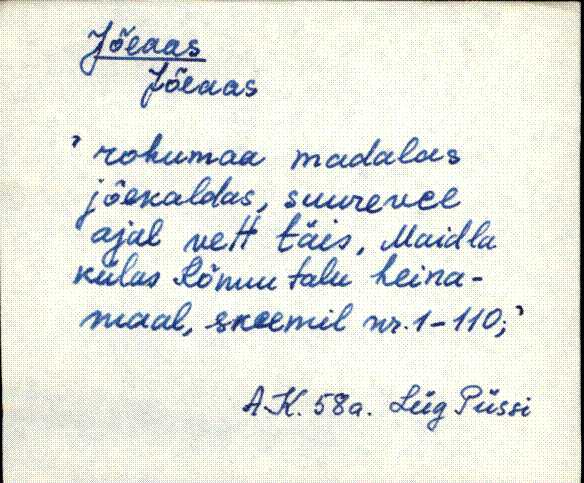 Jõeaas
Jõeaas
' rohumaa madalas
jõekaldas, suurevee
ajal vett täis, Maidla
külas Rõmuu talu heina-
maal, skeemil nr. 1-110;'
A.K. 58a. Lüg Püssi